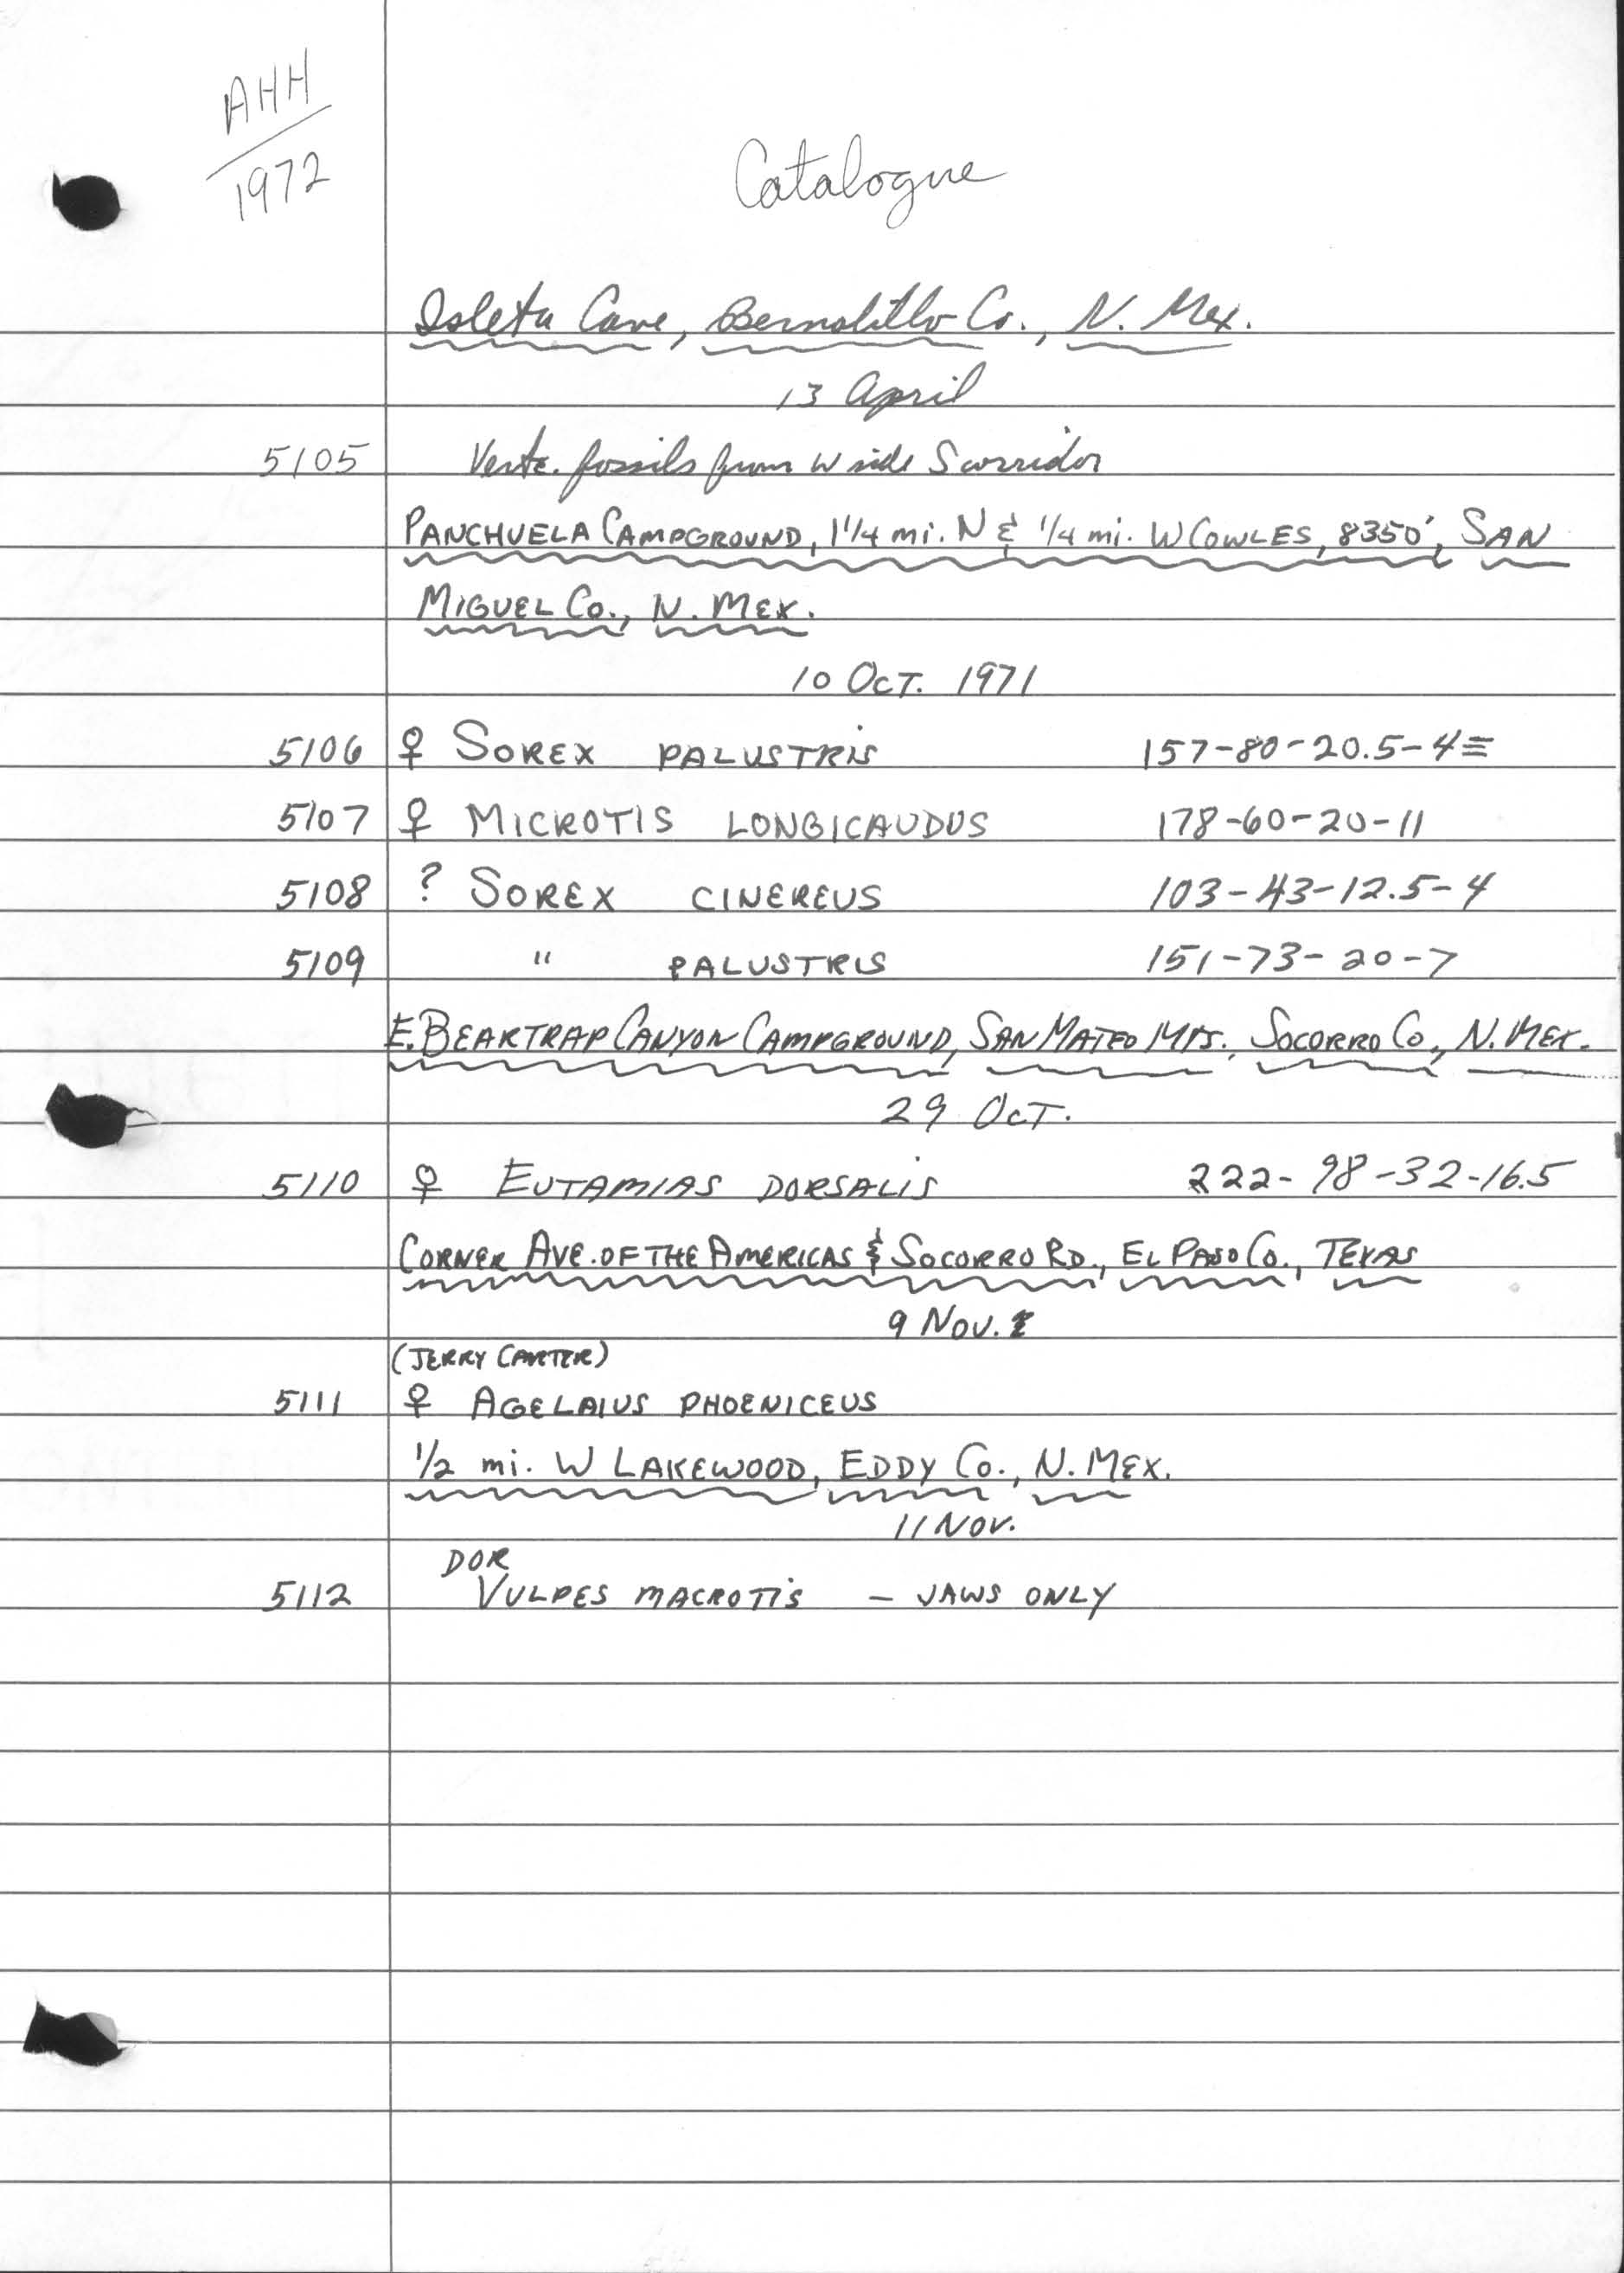 AHH
1972
Catalogue
Isleta Cave, Bernalillo Co., N. Mex.
13 April
5105 Verte. fossils from W side S corridor
PANCHUELA CAMPGROUND, 1 1/4 mi. N & 1/4 mi. W COWLES, 8350', SAN
MIGUEL CO., N. MEX.
10 OCT. 1971
5106 ♀ SOREX PALUSTRIS 157-80-20.5-4≡
5107 ♀ MICROTIS LONGICAUDUS 178-60-20-11
5108 ? SOREX CINEREUS 103-43-12.5-4
5109 " PALUSTRIS 151-73-20-7
E. BEARTRAP CANYON CAMPGROUND, SAN MATEO MTS., SOCORRO CO., N. MEX.
29 OCT.
5110 ♀ EUTAMIAS DORSALIS 222-98-32-16.5
CORNER AVE. OF THE AMERICAS & SOCORRO RD., EL PASO CO., TEXAS
9 NOV.
(JERRY CARTER)
5111 ♀ AGELAIUS PHOENICEUS
1/2 mi. W LAKEWOOD, EDDY CO., N. MEX.
11 NOV.
DOR
5112 VULPES MACROTIS - JAWS ONLY